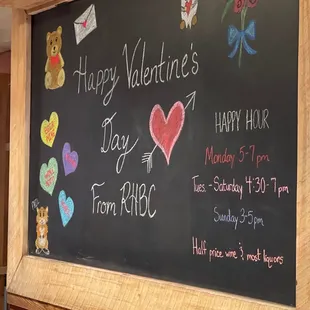 Happy Valentine's
Day
From RHBC
HAPPY HOUR
Monday 5-7pm
Tues. - Saturday 4:30-7pm
Sunday 3-5pm
Half price wine & most liquors